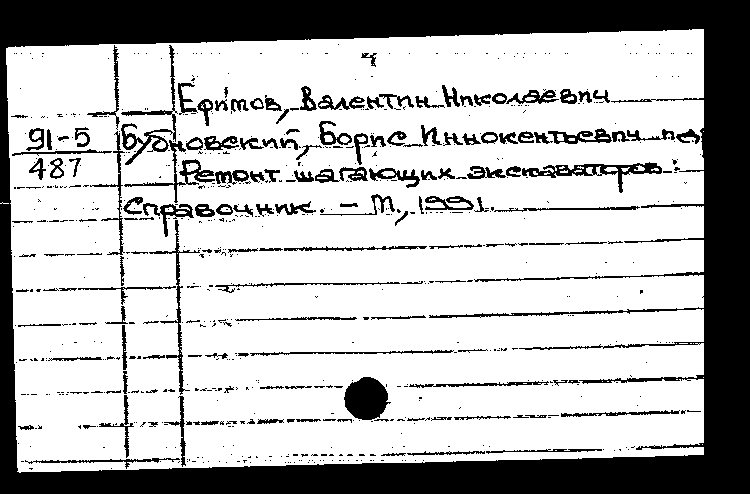 Ефимов, Валентин Николаевич
91-5 Бубновский, Борис Иннокентьевич
487 Ремонт шагающих экскаваторов:
Справочник. – М., 1991.